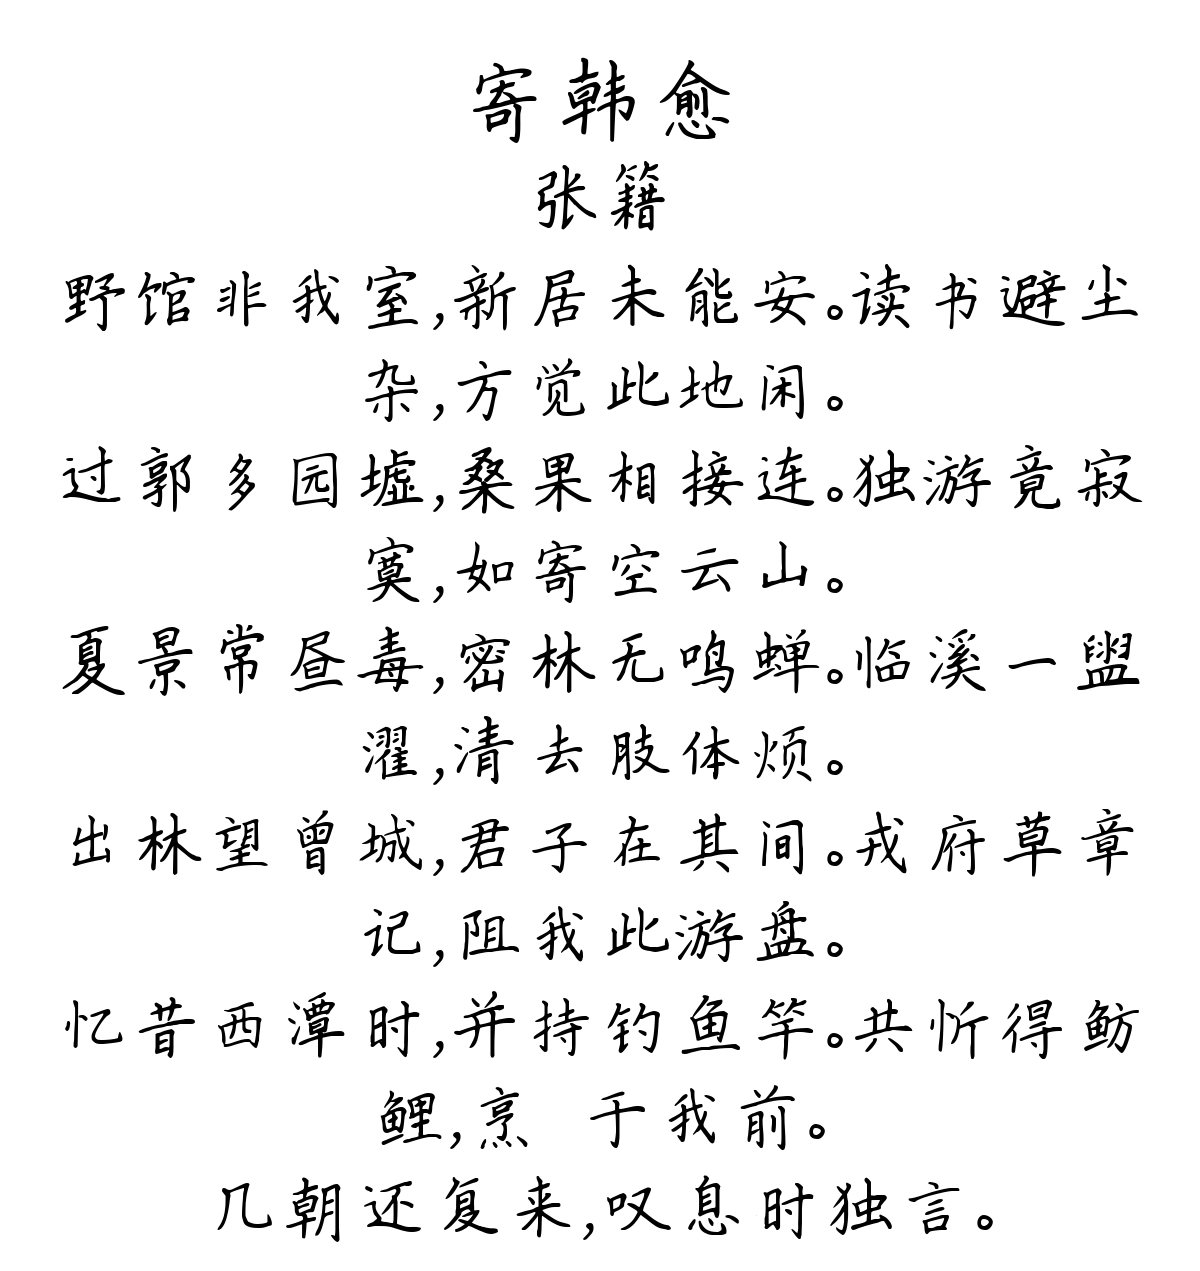 寄韩愈
张籍
野馆非我室,新居未能安。读书避尘
杂,方觉此地闲。
过郭多园墟,桑果相接连。独游竟寂
寞,如寄空云山。
夏景常昼毒,密林无鸣蝉。临溪一盥
濯,清去肢体烦。
出林望曾城,君子在其间。戎府草章
记,阻我此游盘。
忆昔西潭时,并持钓鱼竿。共忻得鲂
鲤,烹 于我前。
几朝还复来,叹息时独言。